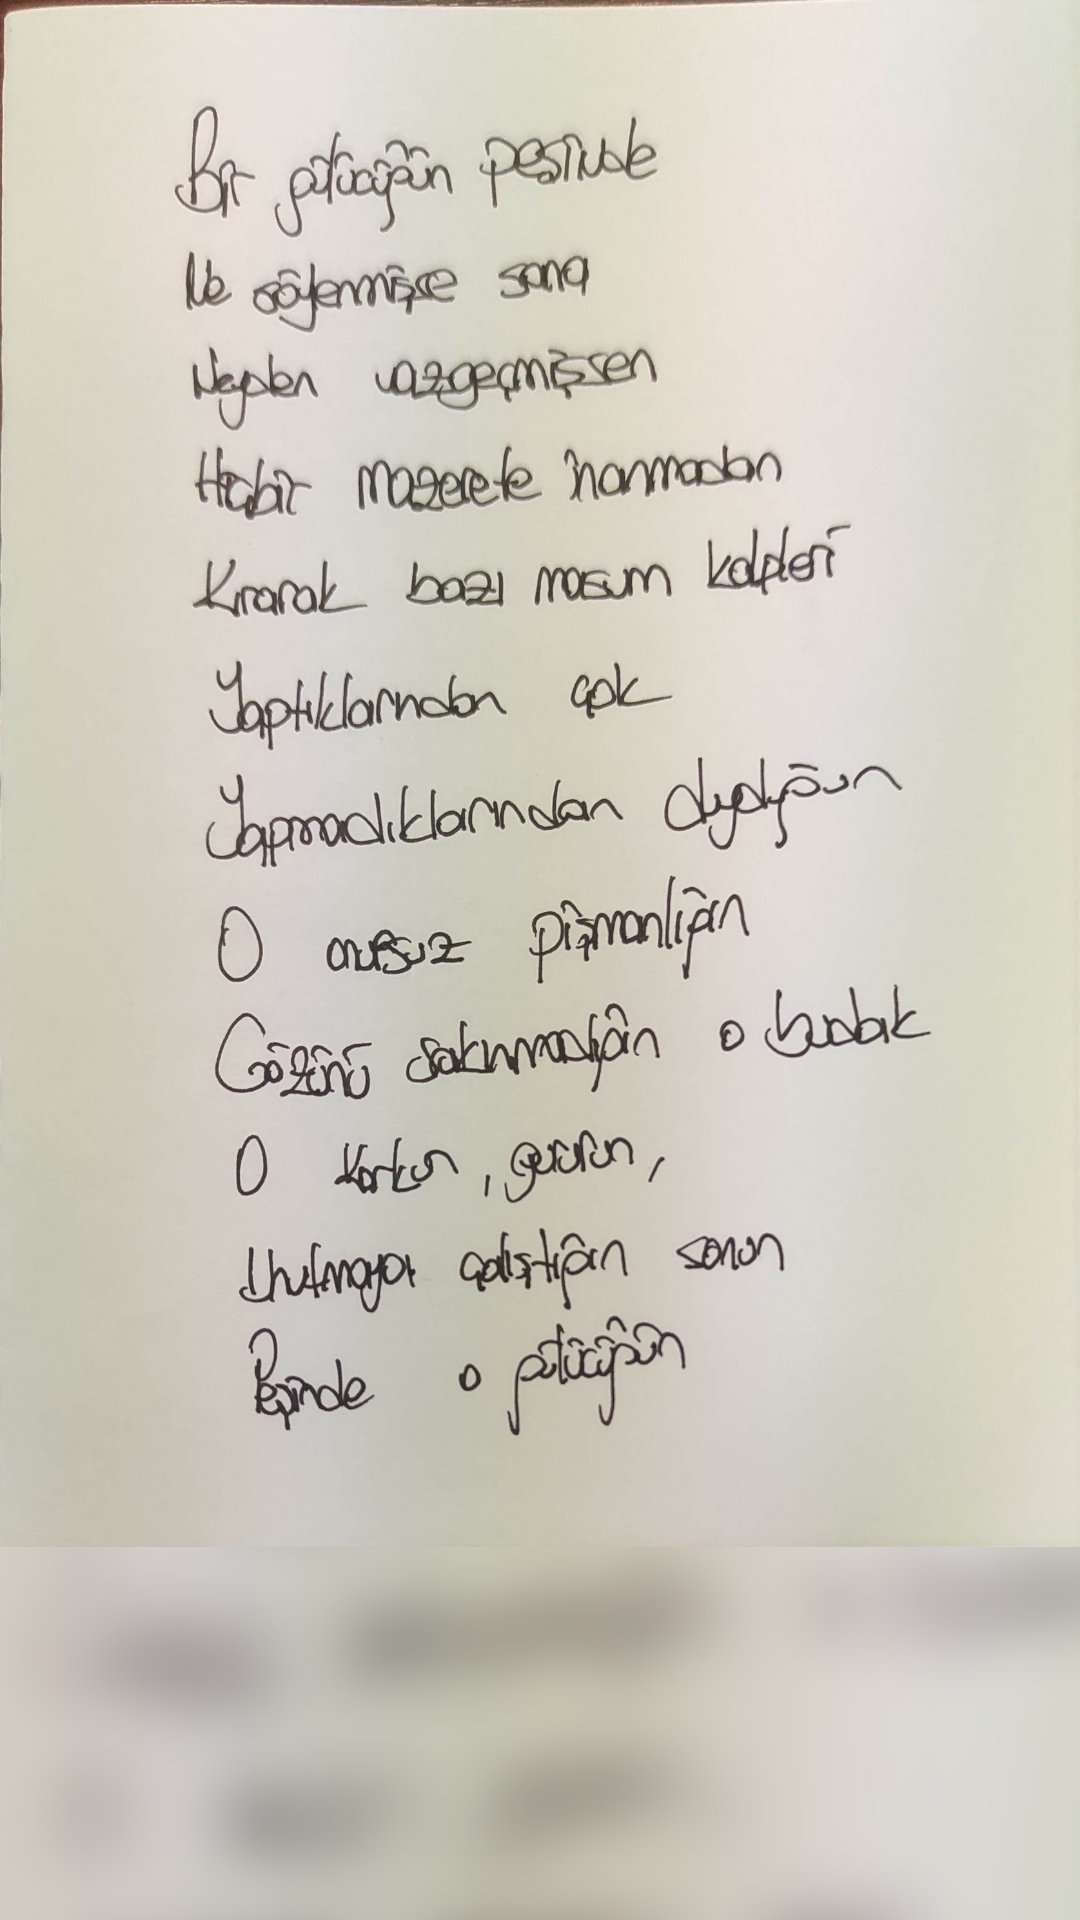 Bir gülücüğün peşinde
Ne söylenmişse sana
Neyden vazgeçmişsen
Hiçbir mazerete inanmadan
Kırarak bazı masum kalpleri
Yaptıklarından çok
Yapmadıklarından duyduğun
O onursuz pişmanlığın
Gözünü sakınmadığın o budak
O korkun, gururun,
Unutmaya çalıştığın sonun
Peşinde o gülücüğün